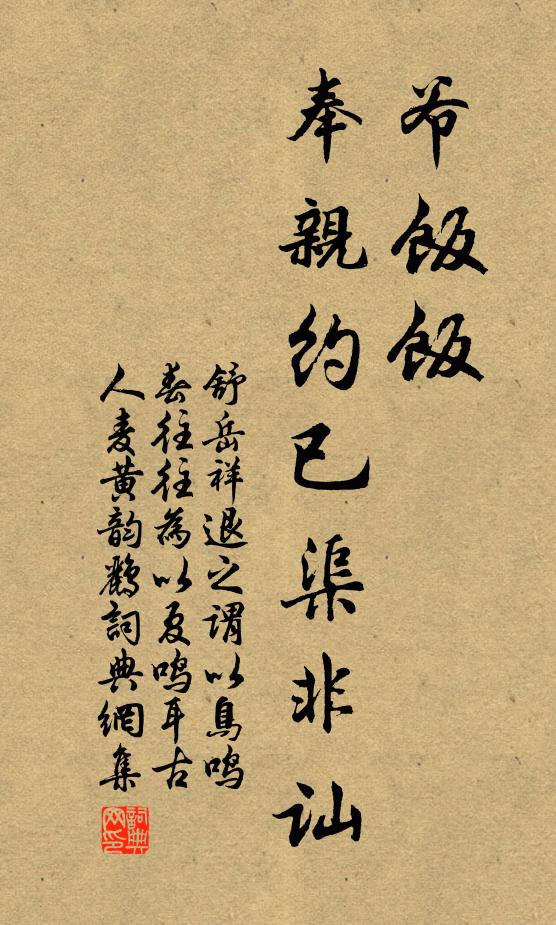 爷飯飯
奉親約已渠非訕
舒岳祥退之謂以鳥鳴
春往往為以夏鳴耳古
人麦黄韵鸛詞典網集
詞典网印